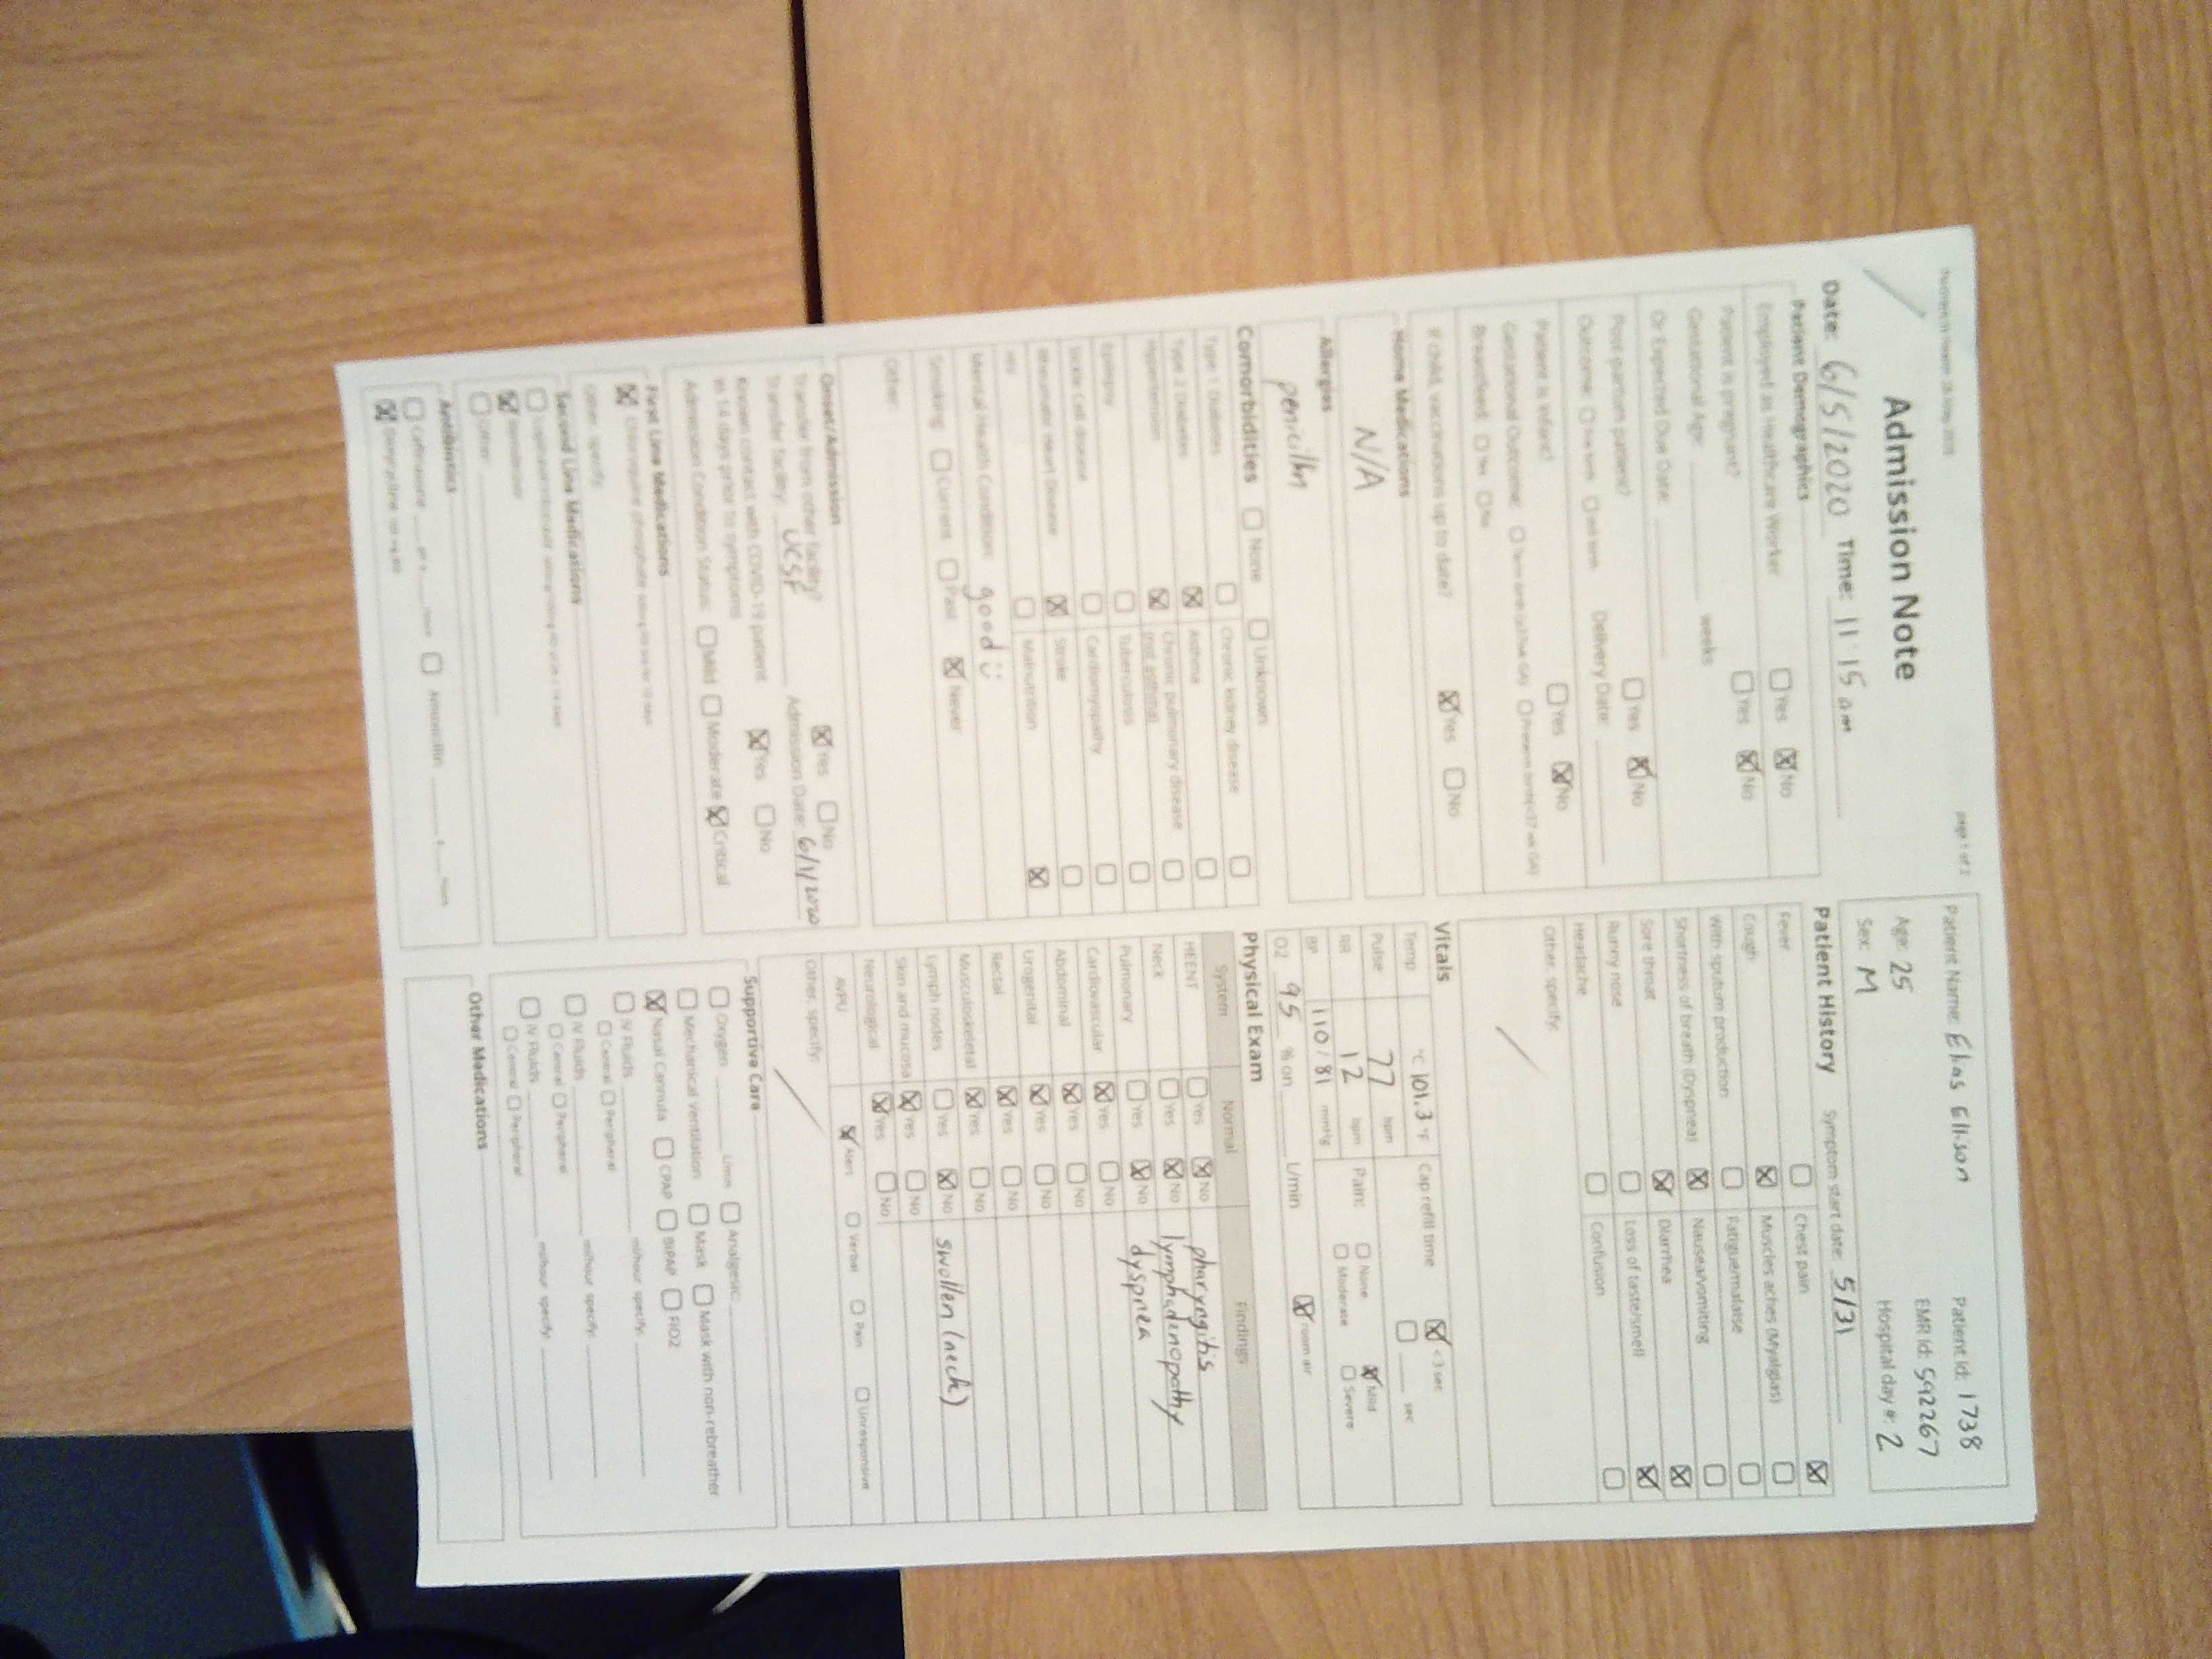 page 1 of 2
Admission Note
Date: 6/5/2020 Time: 11:15 am
Patient Demographics
Employed as Healthcare Worker ☐ Yes ☒ No
Patient is pregnant? ☐ Yes ☒ No
Gestational Age: ______ weeks
Or Expected Due Date: ______
Post-partum patient? ☐ Yes ☒ No
Outcome: ☐ live born ☐ still born Delivery Date: ______
Patient is infant? ☐ Yes ☒ No
Gestational Outcome:
Breastfeed: ☐ Yes ☐ No
If child, vaccinations up to date? ☒ Yes ☐ No
Home Medications
N/A
Allergies
penicillin
Comorbidities ☐ None ☐ Unknown
Type 1 Diabetes ☐ Chronic kidney disease ☐
Type 2 Diabetes ☒ Asthma ☐
Hypertension ☒ Chronic pulmonary disease (not asthma) ☐
Epilepsy ☐ Tuberculosis ☐
Sickle Cell disease ☐ Cardiomyopathy ☐
Rheumatic Heart Disease ☒ Stroke ☐
HIV ☐ Malnutrition ☒
Mental Health Condition: good :)
Smoking ☐ Current ☐ Past ☒ Never
Other:
Onset/Admission
Transfer from other facility? ☒ Yes ☐ No
Transfer facility: UCSF Admission Date: 6/1/2020
Known contact with COVID-19 patient ☒ Yes ☐ No
as 14 days prior to symptoms
Admission Condition Status: ☐ Mild ☐ Moderate ☒ Critical
First Line Medications
☒ Chloroquine phosphate
Other, specify:
Second Line Medications
☒ Remdesivir
☐ Other:
Antibiotics
☐ Ceftriaxone ☐ Amoxicillin
☒ Doxycycline
Patient Name: Elias Ellison Patient Id: 1738
Age: 25 EMR Id: 592267
Sex: M Hospital day #: 2
Patient History Symptom start date: 5/31
Fever ☐ Chest pain ☒
Cough ☒ Muscles aches (Myalgias) ☐
With sputum production ☐ Fatigue/malaise ☐
Shortness of breath (Dyspnea) ☒ Nausea/vomiting ☐
Sore throat ☒ Diarrhea ☒
Runny nose ☐ Loss of taste/smell ☒
Headache ☐ Confusion ☐
Other, specify:
Vitals
Temp °C 101.3 °F Cap refill time ☒ <3 sec
☐ ____ sec
Pulse 77 bpm
RR 12 bpm
Pain: ☐ None ☒ Mild
☐ Moderate ☐ Severe
BP 110 / 81 mmHg
O2 95 % on ____ L/min ☒ room air
Physical Exam
System Normal Findings
HEENT ☐ Yes ☒ No pharyngitis
Neck ☐ Yes ☒ No lymphadenopathy
Pulmonary ☐ Yes ☒ No dyspnea
Cardiovascular ☒ Yes ☐ No
Abdominal ☒ Yes ☐ No
Urogenital ☒ Yes ☐ No
Rectal ☒ Yes ☐ No
Musculoskeletal ☒ Yes ☐ No
Lymph nodes ☐ Yes ☒ No swollen (neck)
Skin and mucosa ☒ Yes ☐ No
Neurological ☒ Yes ☐ No
AVPU ☒ Alert ☐ Verbal ☐ Pain ☐ Unresponsive
Other, specify:
Supportive Care
☐ Oxygen ____ L/min ☐ Analgesic: ____
☐ Mechanical Ventilation ☐ Mask ☐ Mask with non-rebreather
☒ Nasal Cannula ☐ CPAP ☐ BIPAP ☐ FiO2
☐ IV Fluids ____ ml/hour specify: ____
☐ Central ☐ Peripheral
☐ IV Fluids ____ ml/hour specify: ____
☐ Central ☐ Peripheral
☐ IV Fluids ____ ml/hour specify: ____
☐ Central ☐ Peripheral
Other Medications